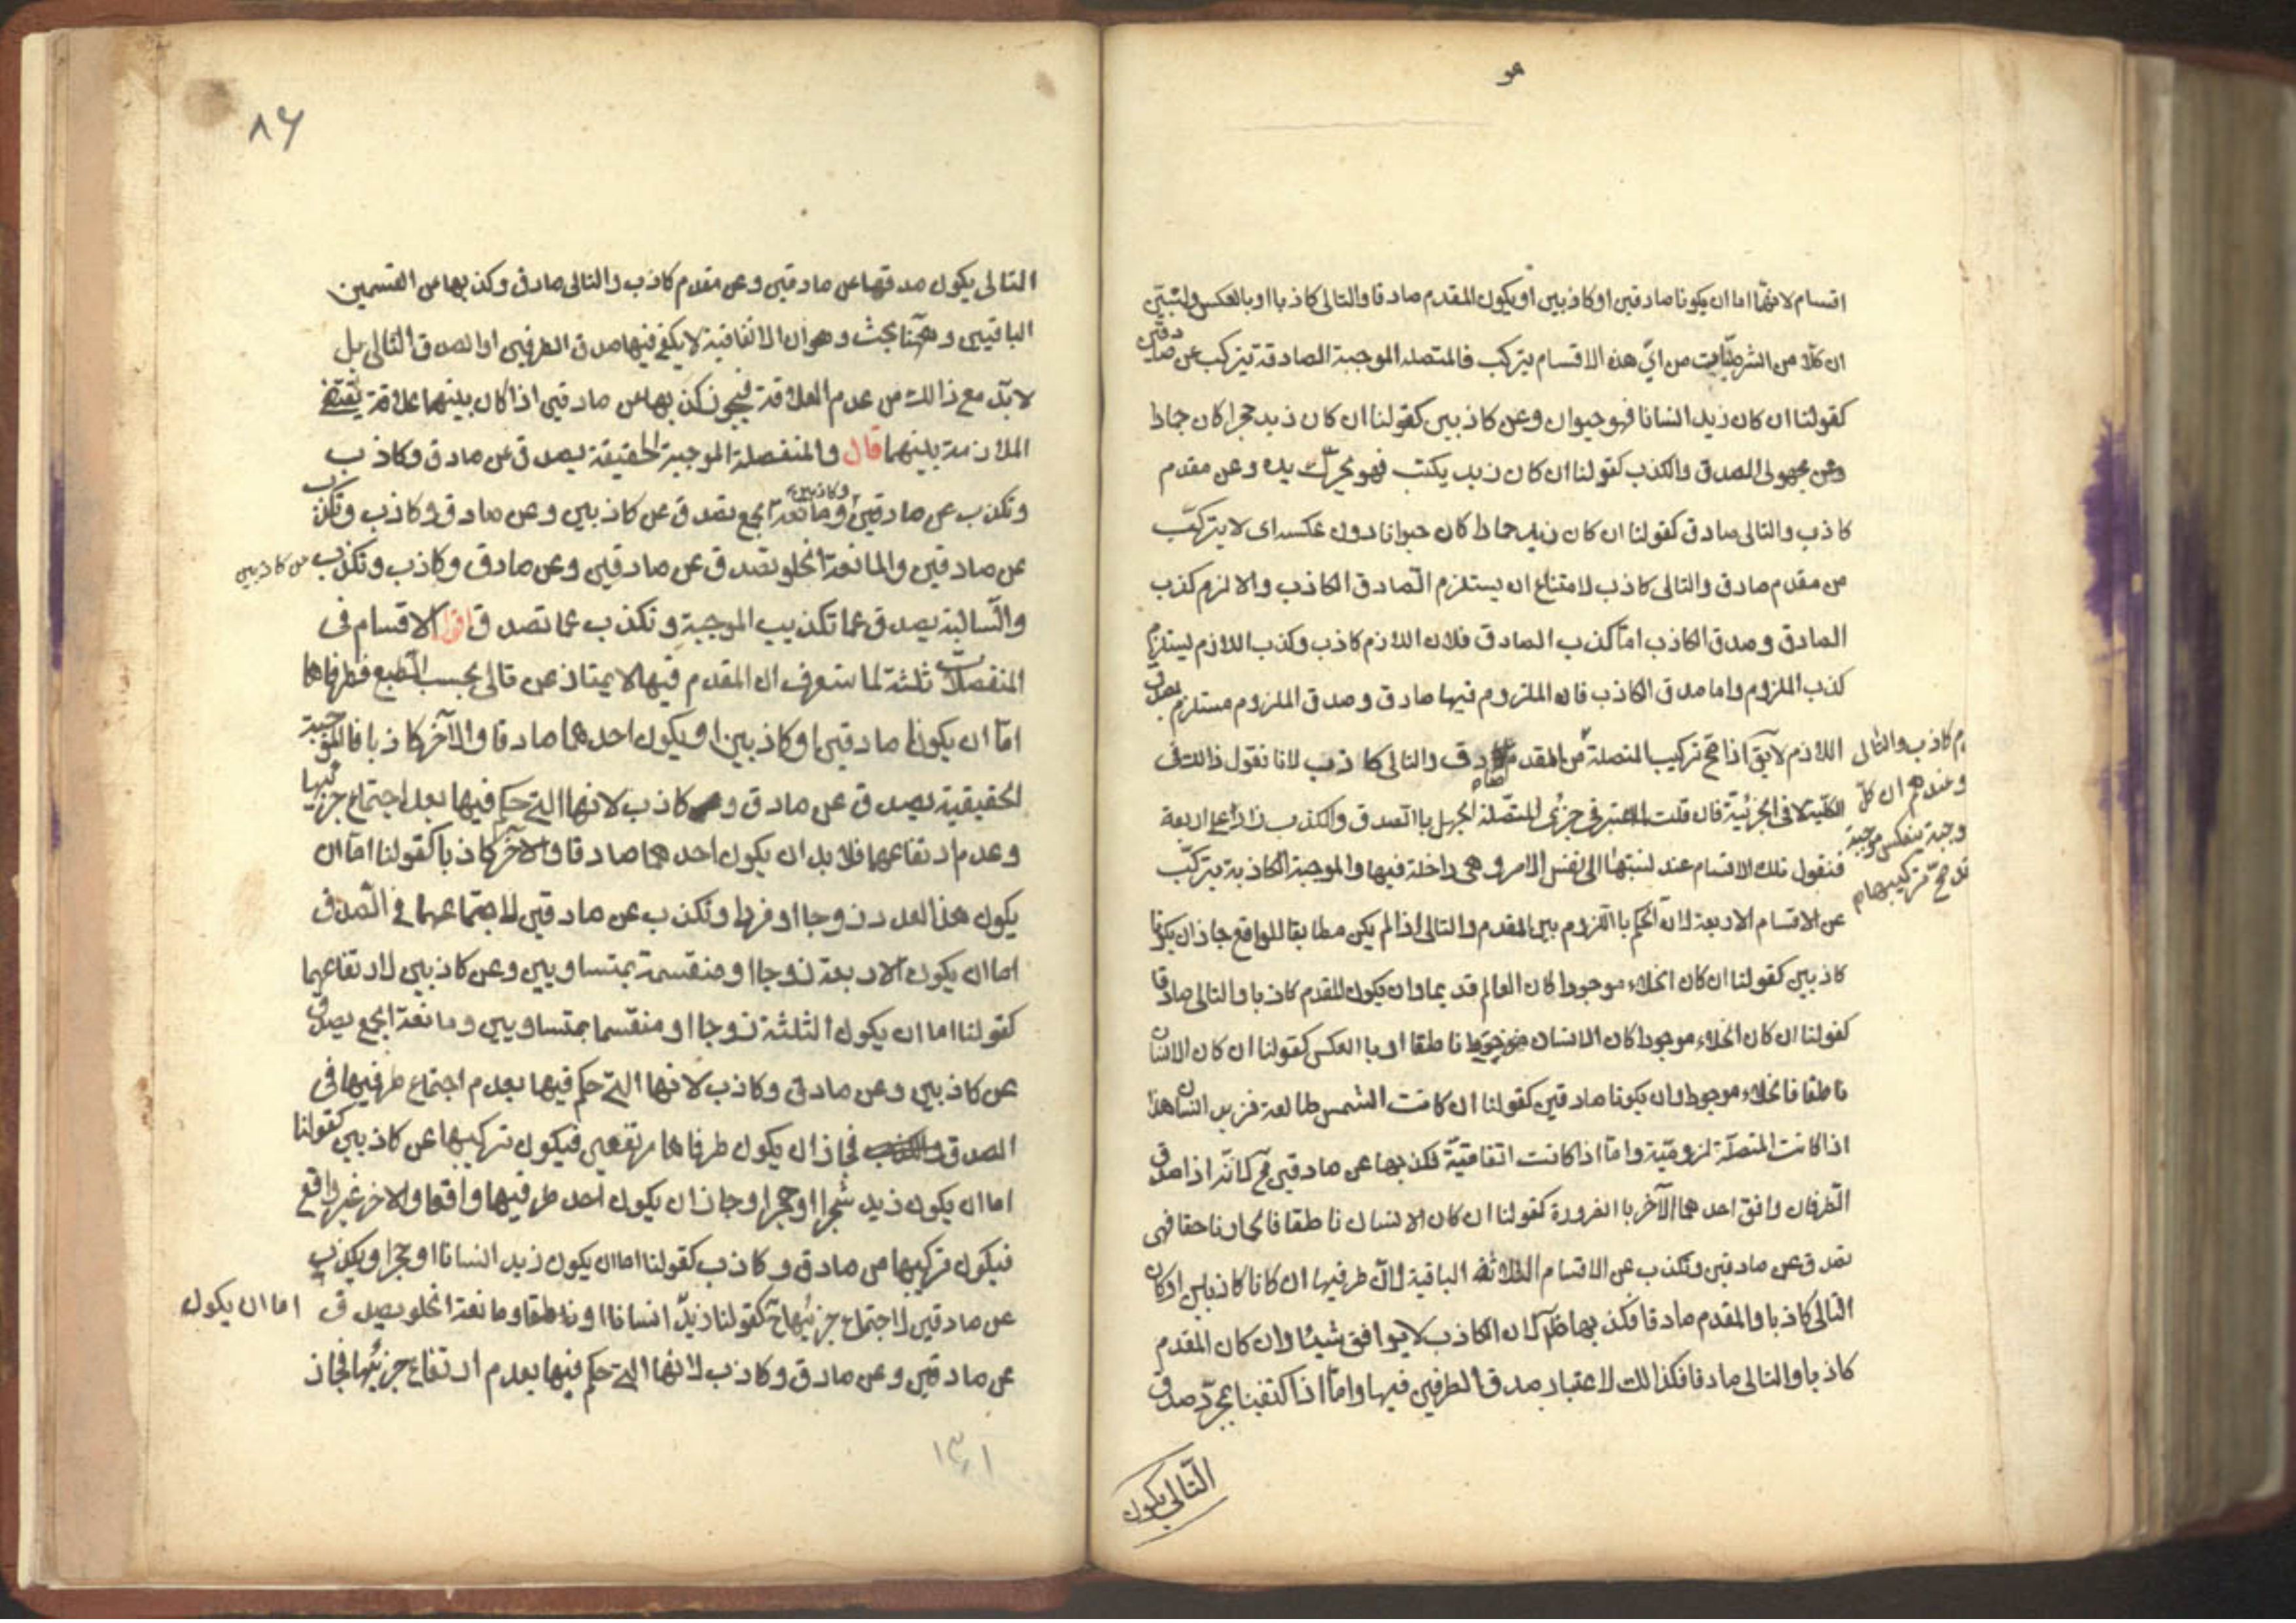 هو
اقسام لانهما اما ان يكونا صادقين او كاذبين او يكون المقدم صادقا والتالى كاذبا او بالعكس ولنبين
ان كلا من الشرطيات من اىّ هذه الاقسام يتركب فالمتصلة الموجبة الصادقة يتركب عن صادقين
كقولنا ان كان زيد انسانا فهو حيوان وعن كاذبين كقولنا ان كان زيد حجرا كان جمادا
وعن مجهولى الصدق والكذب كقولنا ان كان زيد يكتب فهو يحرك يده وعن مقدم
كاذب والتالى صادق كقولنا ان كان زيد حمارا كان حيوانا دون عكسه اى لا يتركب
من مقدم صادق والتالى كاذب لامتناع ان يستلزم الصادق الكاذب والا لزم كذب
الصادق وصدق الكاذب امّا كذب الصادق فلان اللازم كاذب وكذب اللازم يستلزم
كذب الملزوم واما صدق الكاذب فان الملزوم فيها صادق وصدق الملزوم مستلزم لصدق
اللازم لايق اذا صح تركيب المتصلة من المقدم صادق والتالى كاذب لانا نقول ذالك فى
م كاذب والتالى
وعندهم ان كل
وجبة ينعكس موجبة
قد صح تركيبها م
الكلية لا فى الجزئية فان قلت اعتبر فى جزئى المتصلة الجهل بالصدق والكذب زاد على اربعة
فنقول تلك الاقسام عند نسبتها الى نفس الامر و هى داخلة فيها والموجبة الكاذبة يتركب
عن الاقسام الاربعة لان الحكم باللزوم بين المقدم والتالى اذا لم يكن مطابقا للواقع جاز ان يكونا
كاذبين كقولنا ان كان الخلاء موجودا كان العالم قديما وان يكون المقدم كاذبا والتالى صادقا
كقولنا ان كان الخلاء موجودا كان الانسان ناطقا او باالعكس كقولنا ان كان الانسان
ناطقا فالخلاء موجود وان يكونا صادقين كقولنا ان كانت الشمس طالعة فزيد انسان هذا
اذا كانت المتصلة لزوميّة وامّا اذا كانت اتفاقيّة فكذبها عن صادقين مح لانّه اذا صدق
الطرفان وافق احدهما الآخر باالضرورة كقولنا ان كان الانسان ناطقا فالحمار ناهقا فهى
تصدق عن صادقين وتكذب عن الاقسام الثلاثة الباقية لانّ طرفيها ان كانا كاذبين او كان
التالى كاذبا والمقدم صادقا فكذبها ظاهر لان الكاذب لا يوافق شيئا وان كان المقدم
كاذبا والتالى صادقا فكذالك لاعتبار صدق الطرفين فيها وامّا اذا اكتفينا بمجرّد صدق
التالى يكون
٨٦
التالى يكون صدقها عن صادقين وعن مقدم كاذب والتالى صادق وكذبها عن القسمين
الباقيين وههنا بحث وهو ان الاتفاقية لا يكفى فيها صدق الطرفين او الصدق التالى بل
لابدّ مع ذالك من عدم العلاقة فيجوز كذبها عن صادقين اذا كان بينهما علاقة يقتضى
الملازمة بينهما قال والمنفصلة الموجبة الحقيقة يصدق عن صادق وكاذب
وتكذب عن صادقين وكاذبين ومانعة الجمع تصدق عن كاذبين وعن صادق وكاذب وتكذب
عن صادقين والمانعة الخلو تصدق عن صادقين وعن صادق وكاذب وتكذب عن كاذبين
والسالبة يصدق عما تكذيب الموجبة وتكذب عما تصدق اقول الاقسام فى
المنفصلات ثلثة لما ستعرف ان المقدم فيها لا يمتاز عن تالى بحسب الطبع فطرفاها
امّا ان يكونا صادقين او كاذبين او يكون احدهما صادقا والآخر كاذبا فالموجبة
الحقيقية يصدق عن صادق و كاذب لانها التى حكم فيها بعدم اجتماع جزئيها
وعدم ارتفاعهما فلا بد ان يكون احدهما صادقا والآخر كاذبا كقولنا امّا ان
يكون هذا العدد زوجا او فردا وتكذب عن صادقين لاجتماعهما فى الصدق
اما ان يكون الاربعة زوجا او منقسمة بمتساويين وعن كاذبين لارتفاعهما
كقولنا اما ان يكون الثلثة زوجا او منقسما بمتساويين ومانعة الجمع يصدق
عن كاذبين وعن صادق وكاذب لانها التى حكم فيها بعدم اجتماع طرفيها فى
الصدق فجاز ان يكون طرفاها مرتفعين فيكون تركيبها عن كاذبين كقولنا
اما ان يكون زيد شجرا او حجرا وجاز ان يكون احد طرفيها واقعا والاخر غير واقع
فيكون تركيبها من صادق وكاذب كقولنا اما ان يكون زيد انسانا او حجرا ويكذب
عن صادقين لاجتماع جزئيها ح كقولنا زيد انسانا او ناطقا ومانعة الخلو يصدق اما ان يكون
عن صادقين وعن صادق وكاذب لانها التى حكم فيها بعدم ارتفاع جزئيها فجاز